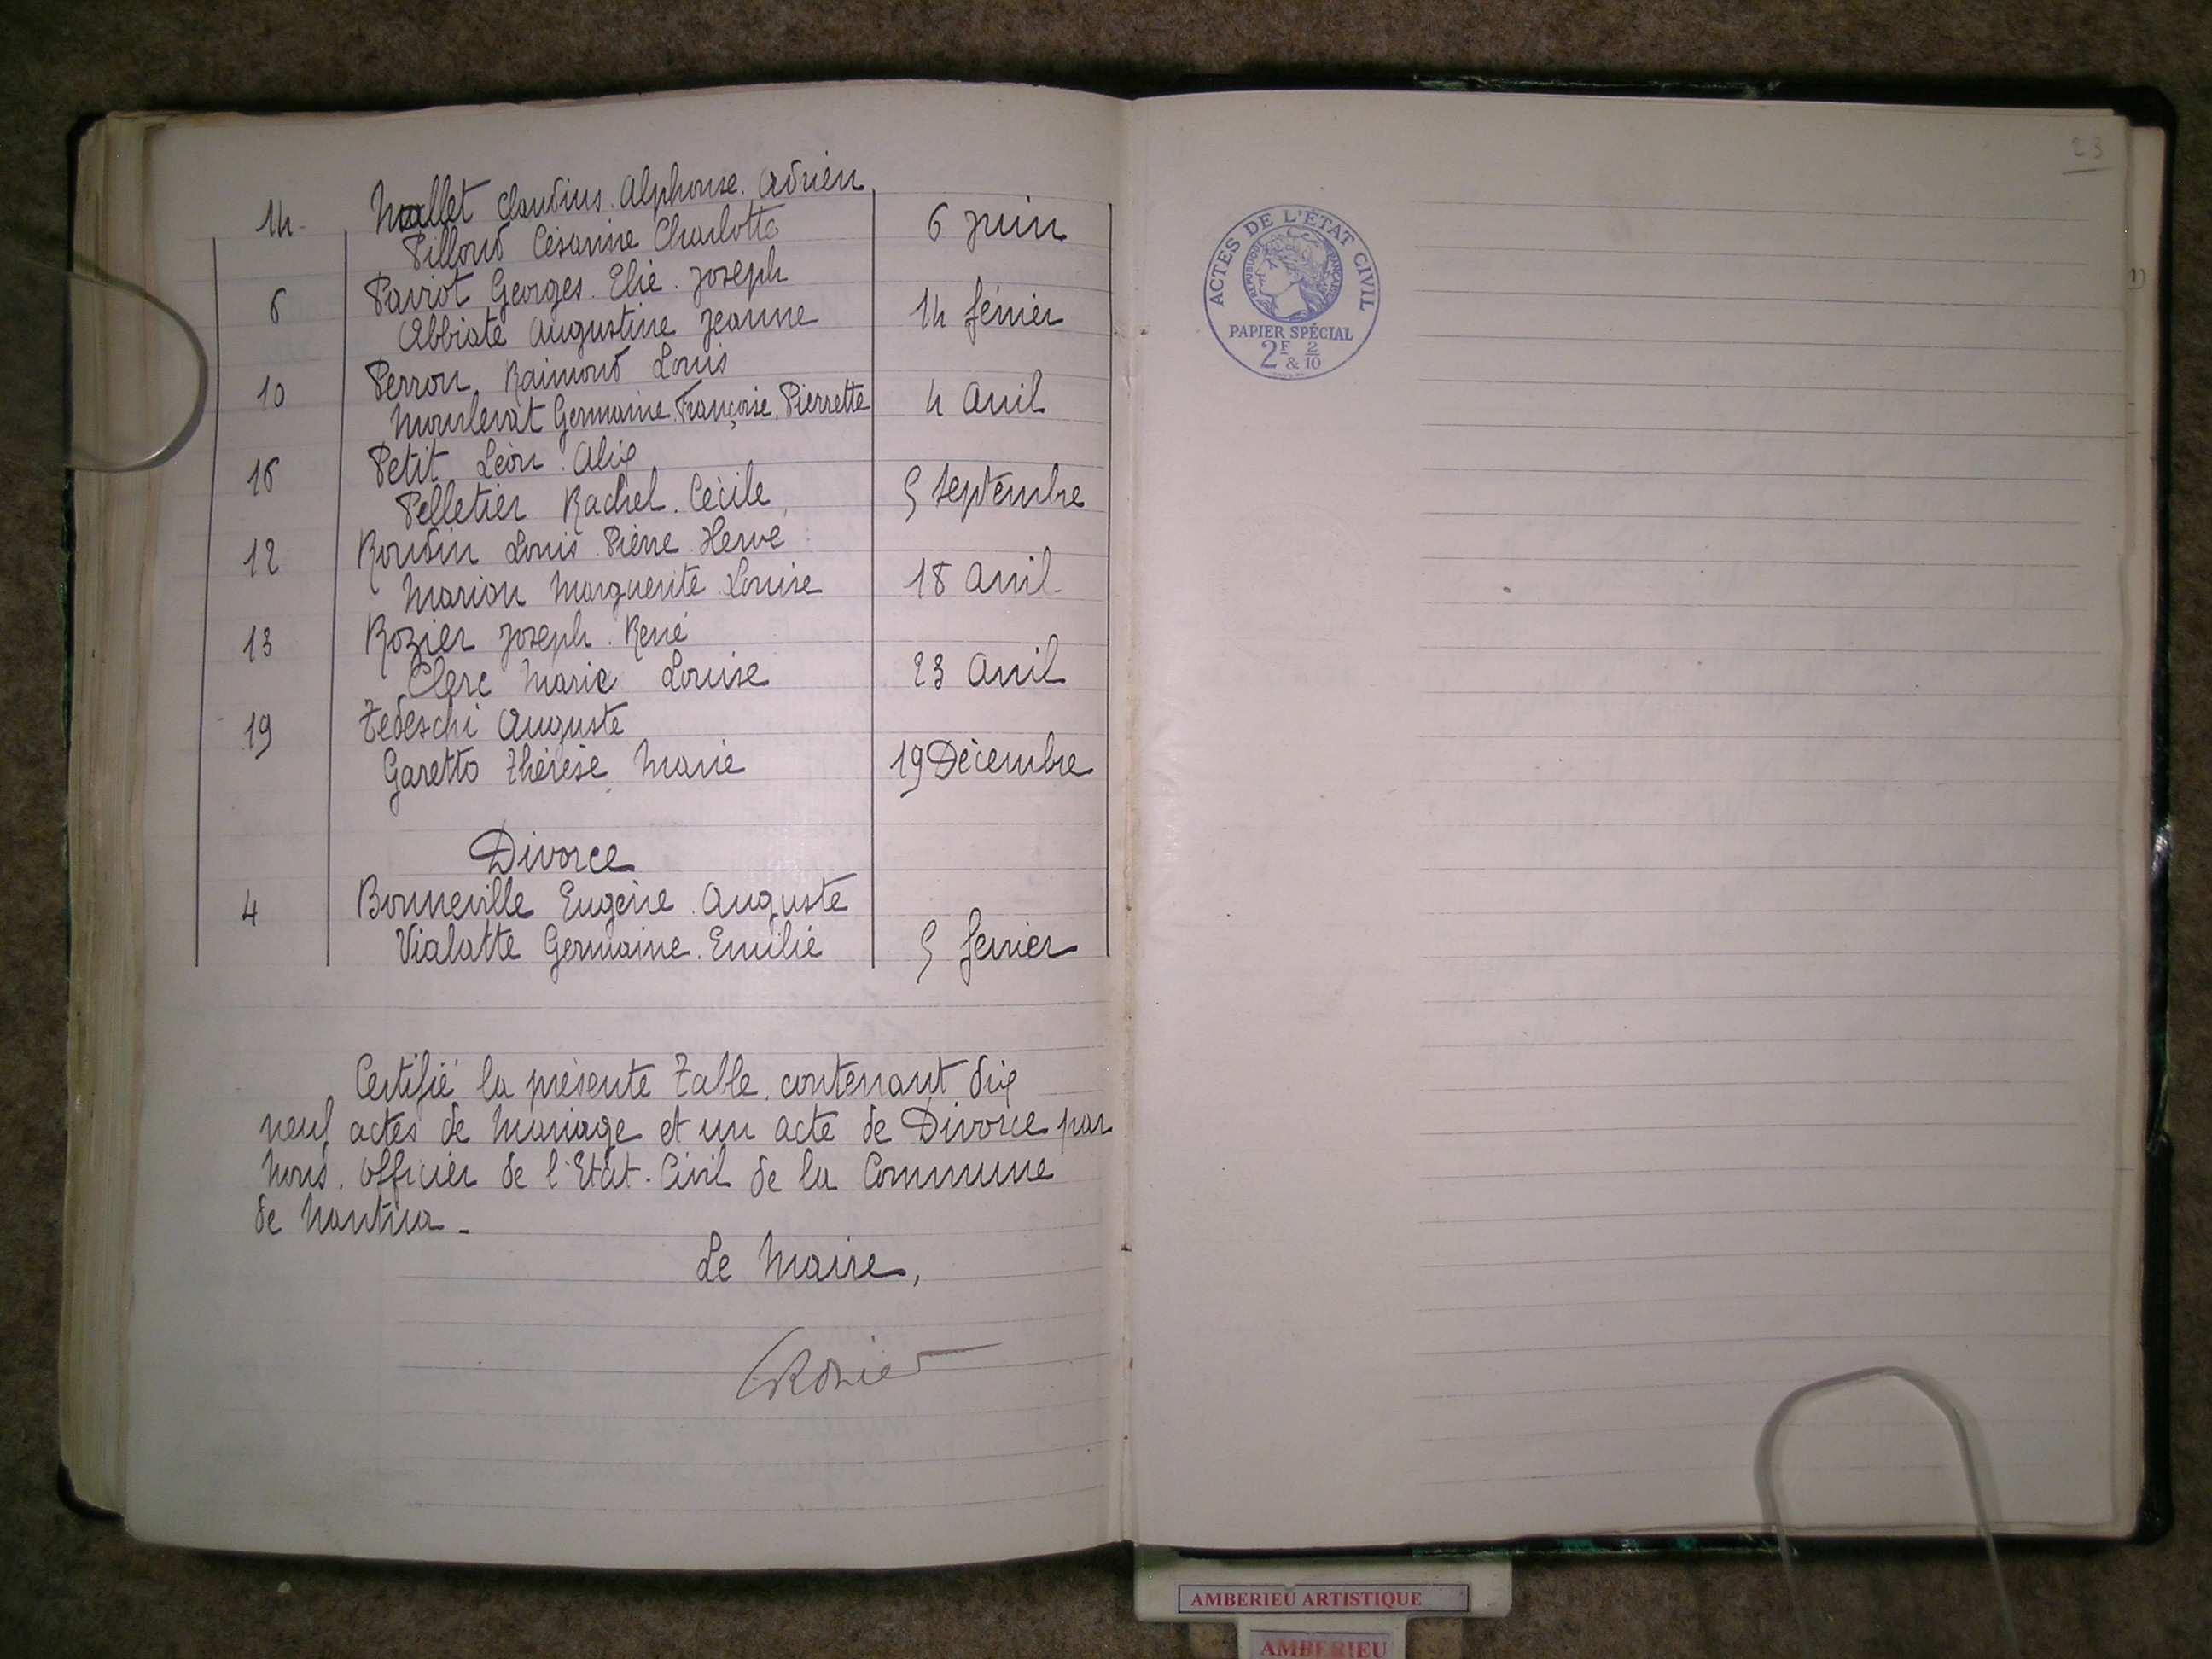 14 Mallet Claudius. Alphonse. Adrien
Pilloud Césarine Charlotte 6 Juin
6 Pariot Georges. Elie. Joseph
Abbiate Augustine Jeanne 14 février
10 Perron Raimond Louis
Moulevat Germaine. Françoise. Pierrette 4 Avril
16 Petit Léon. Alix
Pelletier Rachel. Cécile 5 Septembre
12 Roudin Louis. Pierre. Hervé
Marion Marguerite Louise 18 Avril
13 Rozier Joseph. René
Clerc Marie Louise 23 Avril
19 Tedeschi Auguste
Garetto Thérèse Marie 19 Décembre
Divorce
4 Bonneville Eugène. Auguste
Vialatte Germaine. Emilie 5 février
Certifié la présente Table, contenant dix
neuf actes de Mariage et un acte de Divorce par
Nous. Officier de l'Etat-Civil de la Commune
de Nantua_
Le Maire,
23
ACTES DE L'ÉTAT CIVIL
RÉPUBLIQUE FRANÇAISE
PAPIER SPÉCIAL
2F & 2/10
AMBERIEU ARTISTIQUE
AMBERIEU